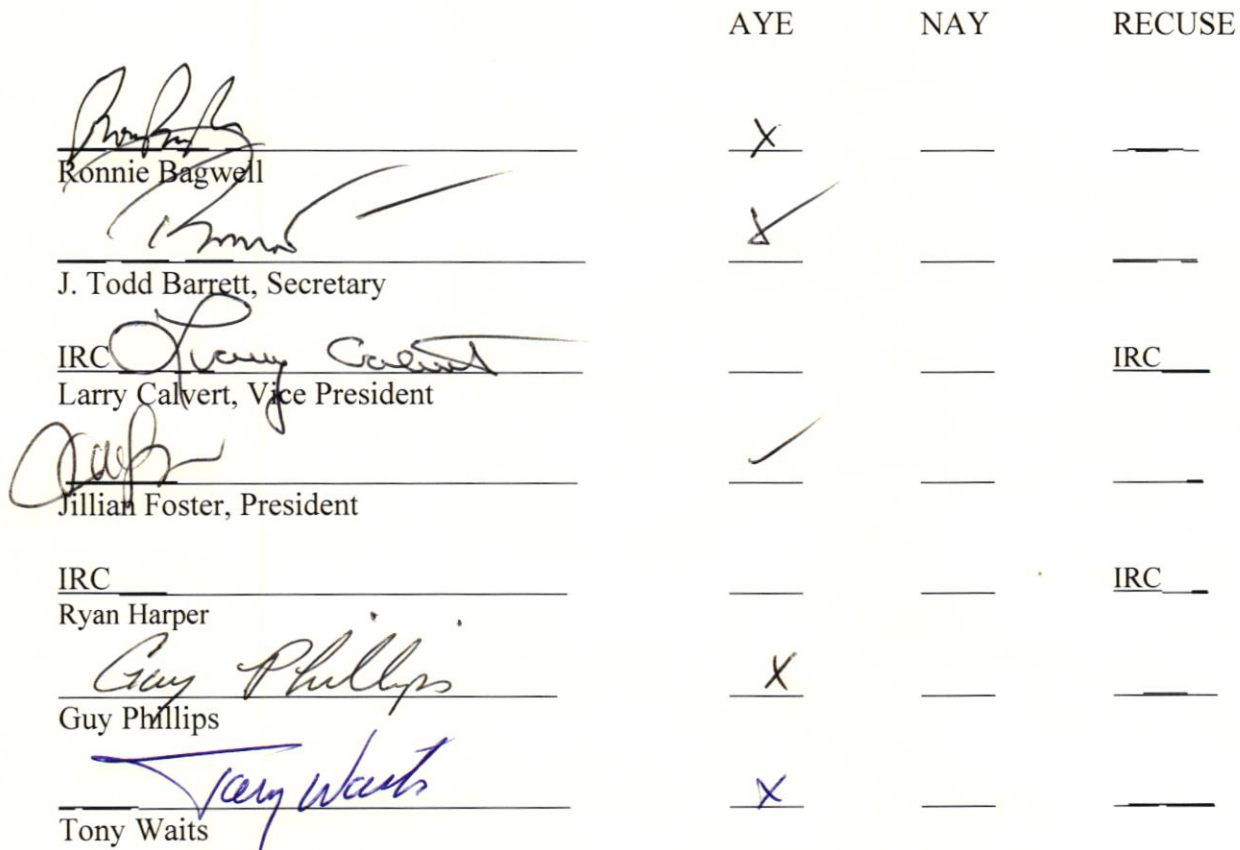 AYE NAY RECUSE
X
Ronnie Bagwell
J. Todd Barrett, Secretary
IRC Larry Calvert IRC
Larry Calvert, Vice President
Jillian Foster, President
IRC IRC
Ryan Harper
Guy Phillips X
Guy Phillips
Tony Waits X
Tony Waits